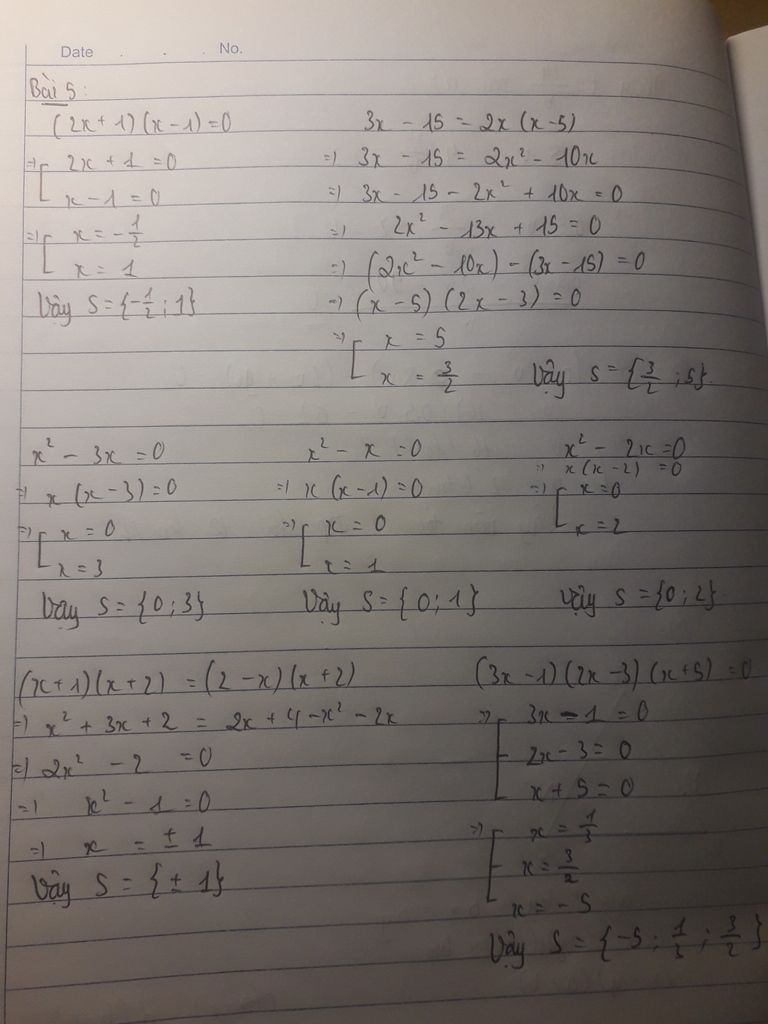 Date . . . No.
Bài 5:
(2x+1)(x-1)=0
=> [ 2x+1=0
x-1=0
=> [ x=-1/2
x=1
Vậy S={-1/2;1}
3x-15=2x(x-5)
=> 3x-15=2x²-10x
=> 3x-15-2x²+10x=0
=> 2x²-13x+15=0
=> (2x²-10x)-(3x-15)=0
=> (x-5)(2x-3)=0
=> [ x=5
x=3/2
Vậy S={3/2;5}.
x²-3x=0
=> x(x-3)=0
=> [ x=0
x=3
Vậy S={0;3}
x²-x=0
=> x(x-1)=0
=> [ x=0
x=1
Vậy S={0;1}
x²-2x=0
=> x(x-2)=0
=> [ x=0
x=2
Vậy S={0;2}
(x+1)(x+2)=(2-x)(x+2)
=> x²+3x+2=2x+4-x²-2x
=> 2x²-2=0
=> x²-1=0
=> x=±1
Vậy S={±1}
(3x-1)(2x-3)(x+5)=0
=> [ 3x-1=0
2x-3=0
x+5=0
=> [ x=1/3
x=3/2
x=-5
Vậy S={-5;1/3;3/2}